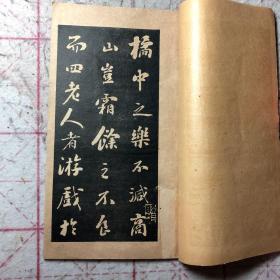 橘中之樂不減商
山豈霜餘之不食
而四老人者游戲於